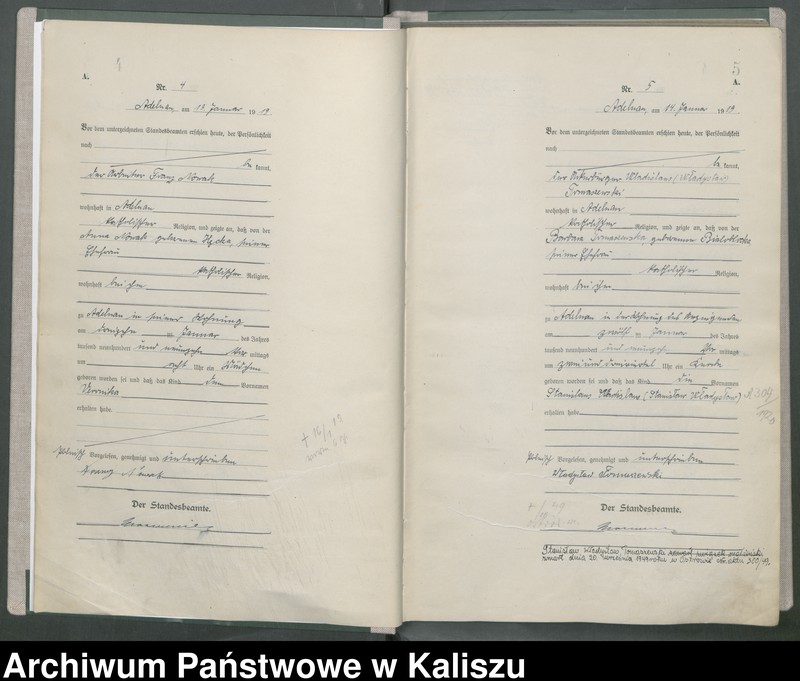 A.
Nr. 4
Adelnau am 13. Januar 1919
Vor dem unterzeichneten Standesbeamten erschien heute, der Persönlichkeit
nach
be kannt,
der Arbeiter Franz Nowak
wohnhaft in Adelnau
katholischer Religion, und zeigte an, daß von der
Anna Nowak geborenen seiner
Ehefrau
katholischer Religion,
wohnhaft bei ihm
zu Adelnau in seiner Wohnung
am ten Januar des Jahres
tausend neunhundert und neunzehn Vor mittags
um acht Uhr ein Mädchen
geboren worden sei und daß das Kind den Vornamen
Veronika
erhalten habe.
Polnisch Vorgelesen, genehmigt und unterschrieben
Franz Nowak
Der Standesbeamte.
5
A.
Nr. 5
Adelnau am 14. Januar 1919.
Vor dem unterzeichneten Standesbeamten erschien heute, der Persönlichkeit
nach
be kannt,
der Ackerbürger Wladislaus (Władysław)
Tomaszewski
wohnhaft in Adelnau
katholischer Religion, und zeigte an, daß von der
Barbara Tomaszewska, geborenen
seiner Ehefrau
katholischer Religion,
wohnhaft bei ihm
zu Adelnau in der Wohnung des Anzeigenden
am zwölf ten Januar des Jahres
tausend neunhundert und neunzehn Vor mittags
um Uhr ein Knabe
geboren worden sei und daß das Kind die Vornamen
Stanislaus Wladislaus (Stanisław Władysław)
erhalten habe.
Polnisch Vorgelesen, genehmigt und unterschrieben
Władysław Tomaszewski
Der Standesbeamte.
Stanisław Władysław Tomaszewski
zmarł dnia 20 września 1949 roku w Ostrowie nr. aktu 300/49.
Archiwum Państwowe w Kaliszu